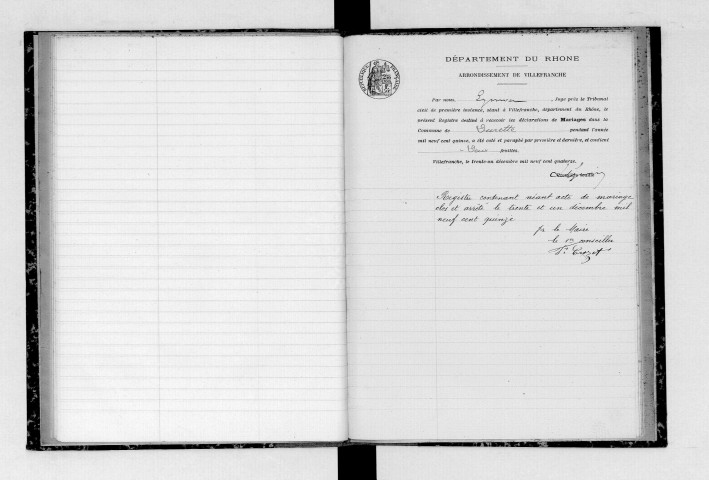 DÉPARTEMENT DU RHONE
ARRONDISSEMENT DE VILLEFRANCHE
Par nous, Juge près le Tribunal
civil de première instance, séant à Villefranche, département du Rhône, le
présent Registre destiné à recevoir les déclarations de Mariages dans la
Commune de Durette pendant l'année
mil neuf cent quinze, a été coté et paraphé par première et dernière, et contient
deux feuilles.
Villefranche, le trente-un décembre mil neuf cent quatorze.
Registre contenant néant acte de mariage
clos et arrêté le trente et un décembre mil
neuf cent quinze
pr le Maire
le 1er conseiller